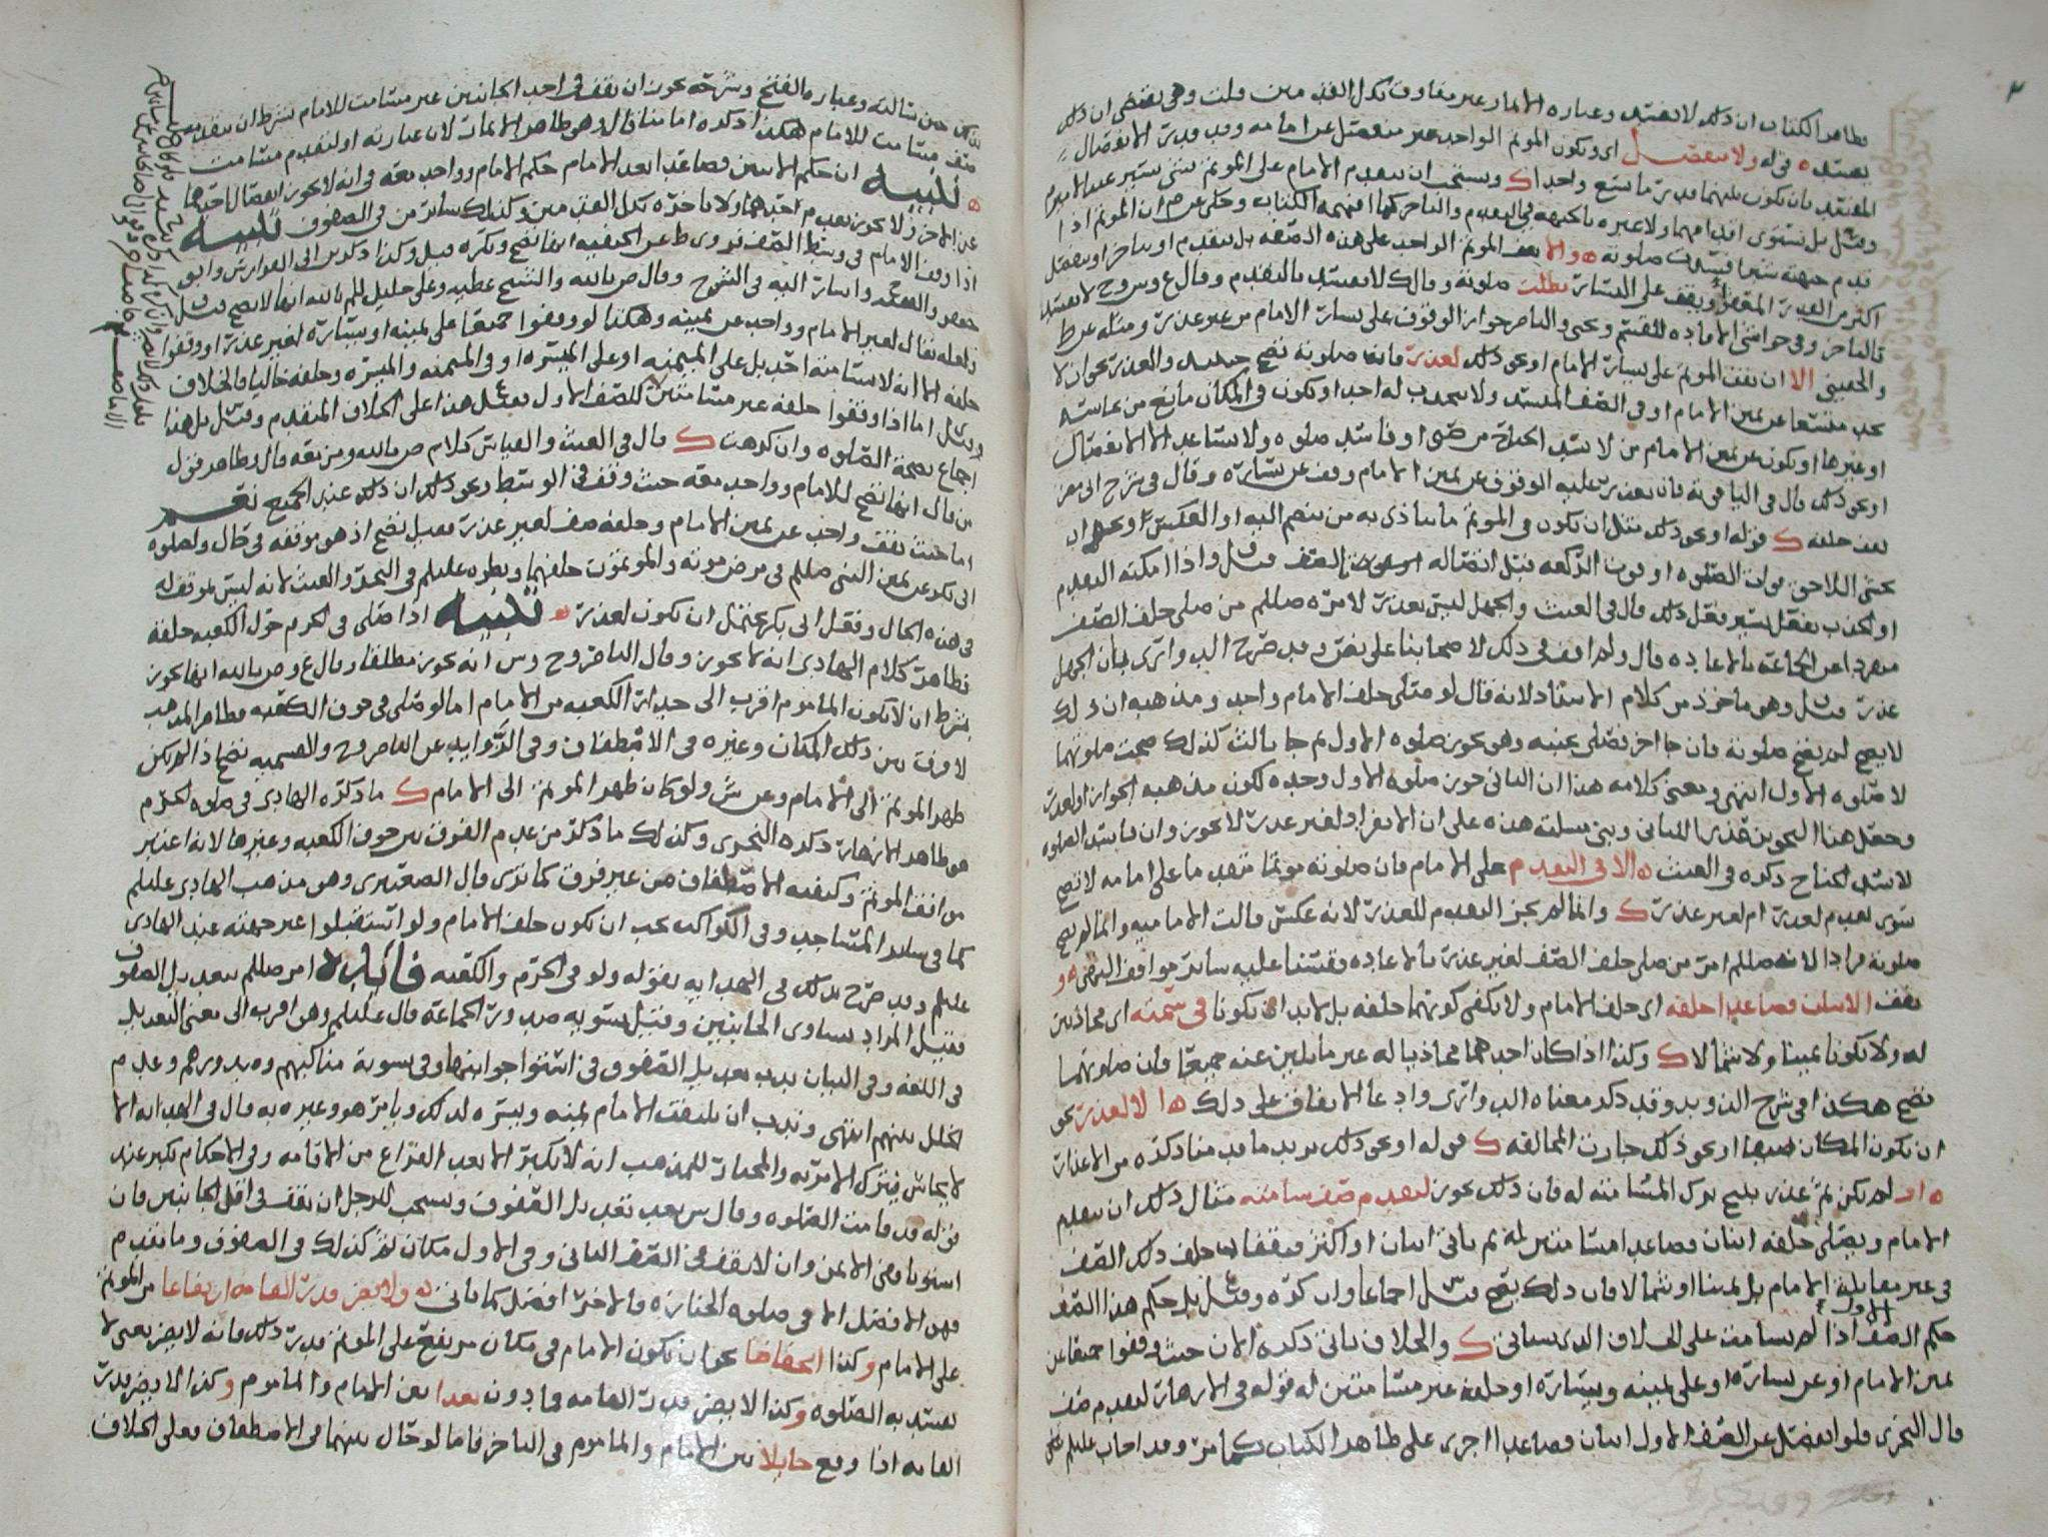 فظاهر الكتاب ان ذلك لا يفسد وعباره الاثمار غير متفاوت بكل القدمين قلت وهي تقتضي ان ذلك
يفسد ه قوله ولا منفصل اي ويكون المؤتم الواحد غير منفصل عن امامه وقدر الانفصال
المفسد بان يكون بينهما قدر ما يسع واحدا ك ويستحب ان يتقدم الامام على المؤتم
وقيل بل تستوي اقدامهما ولا عبره بالجبهه في التقدم والتاخر كما افهمه الكتاب وحكي عن م ان المؤتم اذا
قدم جبهته فسدت صلوته ه والا يقف المؤتم الواحد على هذه الصفه بل يتقدم او يتاخر او ينفصل
اكثر من القدر المعفو او يقف على اليسار بطلت صلوته وقال ك لا تفسد بالتقدم وقال ع وس وح لا تفسد
بالتاخر وفي حواشي الافاده للقسم ويحيى والناصر جواز الوقوف على يسار الامام من غير عذر ومثله عن ط
والحقيني الا ان يقف المؤتم على يسار الامام او نحو ذلك لعذر فانها صلوته تصح حينئذ والعذر نحو ان لا
يجد متسعا عن يمين الامام او في الصف المنسد ولا ينجذب له احد او يكون في المكان مانع من نجاسته
او غيرها او يكون عن يمين الامام من لا يسد الجناح من صبي او فاسد صلوه ولا يساعد الا الانفصال
او نحو ذلك قال في اليافوته فان تعذر عليه الوقوف عن يمين الامام وقف عن يساره وقال في شرح ابي مضر
يقف خلفه ك قوله او نحو ذلك مثل ان يكون في المؤتم ما يتاذى به من ينضم اليه او العكس او نحو ان
يخشى اللاحق فوات الصلوه او فوت الركعه قبل اتصاله الصف قيل واذا امكنه التقدم
او الجذب بفعل يسير فعل ذلك قال في الغيث والجهل ليس بعذر لامره صللم من صلى خلف الصف
منفردا عن الجماعه بالاعاده قال ولم اقف في ذلك لاصحابنا على نص وقد صرح السيد وابرى بان الجهل
عذر قيل وهو مأخوذ من كلام الاستاذ لانه قال لو صلى خلف الامام واحد ومذهبه ان ذلك
لا يصح لم تصح صلوته فان جا اخر فصلى بجنبه وهو يجوز صلوه الاول ثم جا ثالث كذلك صحت صلوتهما
لا صلوه الاول انتهى ومعنى كلامه هذا ان الثاني جوز صلوه الاول وحده لكون مذهبه الجواز او لعذر
وجعل هذا التجويز عذرا للثاني وبنى مسلته هذه على ان الانفراد لغير عذر لا يجوز وان فاسد الصلوه
لا يسد الجناح ذكره في الغيث ه الا في التقدم على الامام فان صلوته مؤتما متقدما على امامه لا تصح
سوى تقدم لعذر ام لغير عذر ك وانما لم يجز التقدم للعذر لانه عكس قالت الاماميه وانما لم تصح
صلوته فرادا لانه صللم امر من صلى خلف الصف لغير عذر بالاعاده وقسنا عليه سائر مواقف النهي ه و
يقف الاثنان فصاعدا خلفه اي خلف الامام ولا يكفي كونهما خلفه بل لابد ان يكونا في سمته اي محاذيين
له ولا يكونا يمينا ولا شمالا ك وكذا اذا كان احدهما محاذيا له غير مايلين عنه جميعا فان صلوتهما
تصح هكذا في شرح الذويد وقد ذكر معناه السيد وابرى وادعا الاتفاق على ذلك ه الا لعذر نحو
ان يكون المكان ضيقا او نحو ذلك جازت المخالفه ك قوله او نحو ذلك يريد ما قدمنا ذكره من الاعذار
ه او لم يكن ثم عذر يبيح ترك المسامته له فان ذلك يجوز لتقدم صف سامته مثال ذلك ان يتقدم
الامام ويصلي خلفه اثنان فصاعدا مسامتين له ثم ياتي اثنان او اكثر فيقفان خلف ذلك الصف
في غير مقابلة الامام بل يمينا او شمالا فان ذلك يصح قيل اجماعا وان كره وقيل بل حكم هذا الصف
حكم الصف الاول اذا لم يسامت على الخلاف الذي سياتي ك والخلاف ياتي ذكره الان حيث وقفوا جميعا عن
يمين الامام او عن يساره او على يمينه ويساره او خلفه غير مسامتين له قوله في الازهار لتقدم صف
قال النجري فلو انفصل عن الصف الاول اثنان فصاعدا اجزى على ظاهر الكتاب كما مر وقد اجاب عليلم
حين سالته وعباره الفتح وشرحه يجوز ان يقف في احد الجانبين غير مسامت للامام بشرط ان يتقدمه
صف مسامت للامام هكذا ذكره امامنا قال وهو ظاهر الاثمار لان عبارته او لتقدم مسامت
ه تنبيه ان حكم الاثنين فصاعدا بعد الامام حكم الامام وواحد معه في انه لا يجوز انفصال احدهما
عن الاخر ولا يجوز تقدم احدهما ولا تاخره بكل القدمين وكذلك سائر من في الصفوف تنبيه
اذا وقف الامام في وسط الصف فروي ط عن الحنفيه انها تصح وتكره قيل وكذا ذكره ابي الفوارس وابو
جعفر والفقيه واشار اليه في الشرح وقال ص بالله والشيخ عطيه وعلي خليل للم بالله انها لا تصح قيل
ولعله يقال لغير الامام وواحد عن يمينه وهكذا لو وقفوا جميعا على يمينه او يساره لغير عذر او وقفوا
خلفه الا انه لا يسامته احد بل على الميمنه او على الميسره او في الميمنه والميسره وخلفه خاليا فالخلاف
وقيل اما اذا وقفوا خلفه غير مسامتين للصف الاول فقيل هذا على الخلاف المتقدم وقيل بل هذا
اجماع بصحة الصلوه وان كرهت ك قال في الغيث والقياس كلام ص بالله ومن معه قال وظاهر قول
من قال انها تصح للامام وواحد معه حيث وقف في الوسط او نحو ذلك ان ذلك عند الجميع نعم
اما حيث يقف واحد عن يمين الامام وخلفه صف لغير عذر فقيل تصح اذ هو موقفه في حال ولصلوه
ابي بكر عن يمين النبي صللم في مرض موته والمؤتمون خلفهما ونظره عليلم في البحر والغيث لانه ليس موقفه
في هذه الحال وفعل ابي بكر محتمل ان يكون لعذر ه تنبيه اذا صلى في الحرم حول الكعبه حلقة
فظاهر كلام الهادي انه لا يجوز وقال الناصر وح وس انه يجوز مطلقا وقال ع وص بالله انها يجوز
بشرط ان لا يكون الماموم اقرب الى جدار الكعبه من الامام اما لو صلى في جوف الكعبه فظاهر المذهب
لا فرق بين ذلك المكان وغيره في الاصطفاف وفي الزوايد عن الناصر وح والقسميه تصح اذا لم يكن
ظهر المؤتم الى الامام وعن ش ولو كان ظهر المؤتم الى الامام ك ما ذكره الهادي في صلوه الحرم
هو ظاهر الازهار ذكره النجري وكذلك ما ذكر من عدم الفرق بين جوف الكعبه وغيرها لانه اعتبر
موافقه المؤتم وكيفيه الاصطفاف من غير فرق كما ترى قال الصعيتري وهو مذهب الهادي عليلم
كما في سائر المساجد وفي الكواكب يجب ان يكون خلف الامام ولو استقبلوا غير جهته عند الهادي
عليلم وقد صرح بذلك في الهدايه بقوله ولو في الحرم والكعبه فائده امر صللم بتعديل الصفوف
فقيل المراد تساوي الجانبين وقيل تسويه صدور الجماعه قال عليلم وهو اقرب الى معنى التعديل
في اللغه وفي البيان ندب تعديل الصفوف في استوا جوانبها وفي تسوية مناكبهم وصدورهم وعدم
الخلل بينهم انتهى وندب ان يلتفت الامام يمنه ويسره لذلك ويامر هو وغيره به قال في الهدايه الا
لايحاش فيترك الامر به والمختار للمذهب انه لا يكبر الا بعد الفراغ من الاقامه وفي الاحكام يكبر عند
قوله قد قامت الصلوه وقال س بعد تعديل الصفوف ويستحب للرجل ان يقف في اقل الجانبين فان
استويا ففي الايمن وان لا يقف في الصف الثاني وفي الاول مكان ثم كذلك في الصفوف وما تقدم
فهو الافضل الا في صلوه الجنازه فالاخر افضل كما ياتي ه ولا يضر قدر القامه ارتفاعا من المؤتم
على الامام وكذا انخفاضا نحو ان يكون الامام في مكان مرتفع على المؤتم قدر ذلك فانه لا يضر يعني لا
تفسد به الصلوه وكذا لا يضر قدر القامه فما دون بعدا بين الامام والماموم وكذا لا يضر قدر
القامه اذا وقع حايلا بين الامام والماموم في التاخر فاما لو حال بينهما في الاصطفاف فعلى الخلاف